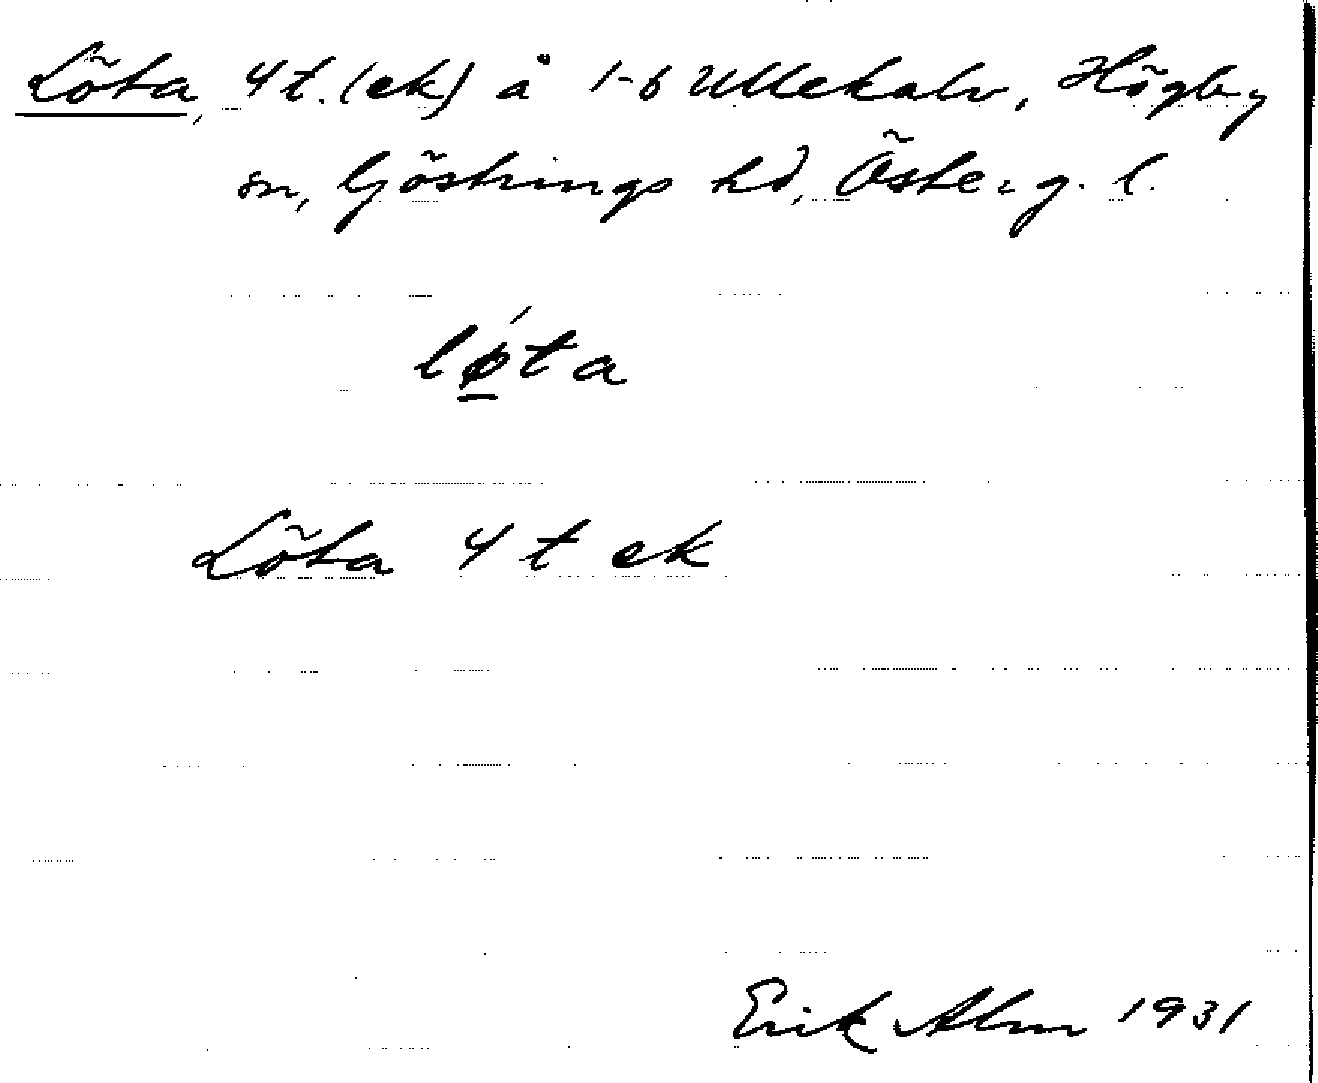 Löta, 4 t. (ek) å 1-6 Ullekalv, Högby
sn, Göstrings hd, Österg. l.
lǿ̲ta
Löta 4 t ek
Erik Alm 1931